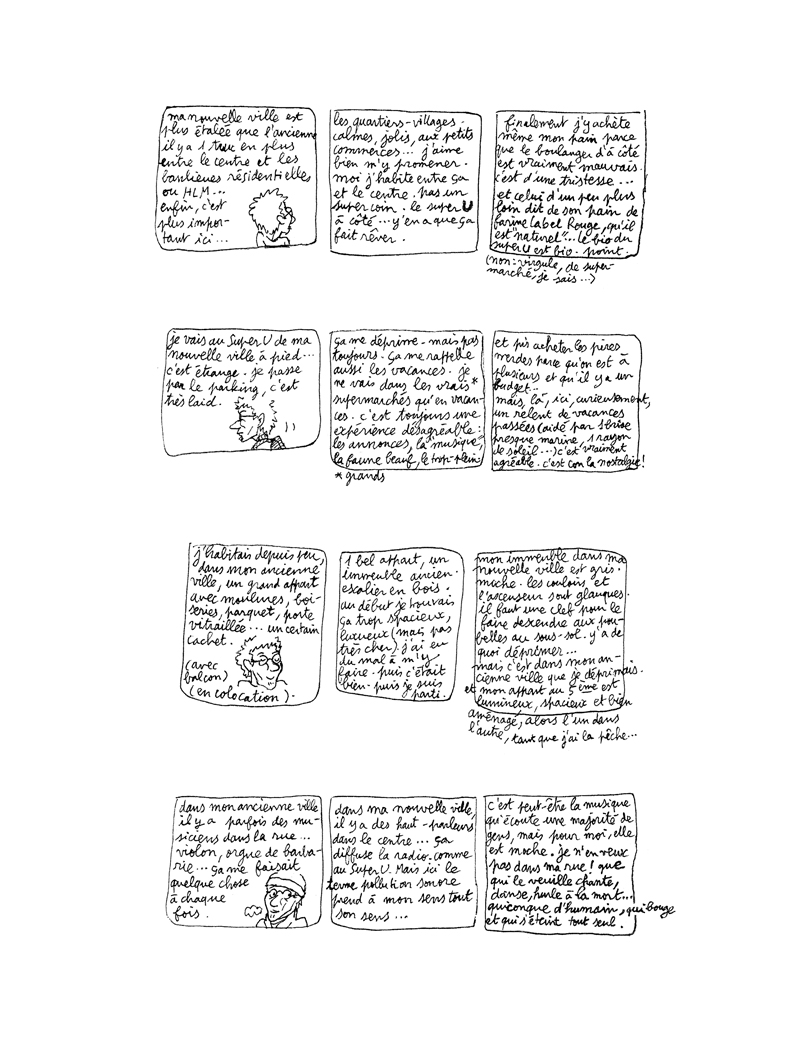 ma nouvelle ville est
plus étalée que l'ancienne
il y a 1 truc en plus
entre le centre et les
banlieues résidentielles
ou HLM...
enfin, c'est
plus impor-
tant ici...
les quartiers-villages.
calmes, jolis, aux petits
commerces... j'aime
bien m'y promener.
moi j'habite entre ça
et le centre. pas un
super coin. le super U
à côté... y'en a que ça
fait rêver.
finalement j'y achète
même mon pain parce
que le boulanger d'à côté
est vraiment mauvais.
c'est d'une tristesse...
et celui d'un peu plus
loin dit de son pain de
farine Label Rouge, qu'il
est "naturel"... le bio du
super U est bio. point.
(non: virgule, de super-
marché, je sais...)
je vais au Super U de ma
nouvelle ville à pied...
c'est étrange. je passe
par le parking, c'est
très laid.
ça me déprime. mais pas
toujours. ça me rappelle
aussi les vacances. je
ne vais dans les vrais*
supermarchés qu'en vacan-
ces. c'est toujours une
expérience désagréable:
les annonces, la "musique",
la faune beauf, le trop-plein.
* grands
et pis acheter les pires
merdes parce qu'on est à
plusieurs et qu'il y a un
budget...
mais, là, ici, curieusement,
un relent de vacances
passées (aidé par 1 brise
presque marine, 1 rayon
de soleil...) c'est vraiment
agréable. c'est con la nostalgie!
j'habitais depuis peu,
dans mon ancienne
ville, un grand appart
avec moulures, boi-
series, parquet, porte
vitraillée... un certain
cachet.
(avec
balcon)
(en colocation).
1 bel appart, un
immeuble ancien.
escalier en bois.
au début je trouvais
ça trop spacieux,
luxueux (mais pas
très cher). j'ai eu
du mal à m'y
faire. puis c'était
bien. puis je suis
parti.
mon immeuble dans ma
nouvelle ville est gris.
moche. les couloirs et
l'ascenseur sont glauques.
il faut une clef pour le
faire descendre aux pou-
belles au sous-sol. y'a de
quoi déprimer...
mais c'est dans mon an-
cienne ville que je déprimais.
et mon appart au 5ème est
lumineux, spacieux et bien
aménagé, alors l'un dans
l'autre, tant que j'ai la pêche...
dans mon ancienne ville
il y a parfois des mu-
siciens dans la rue...
violon, orgue de barba-
rie... ça me faisait
quelque chose
à chaque
fois.
dans ma nouvelle ville,
il y a des haut-parleurs
dans le centre... ça
diffuse la radio. comme
au Super U. Mais ici le
terme pollution sonore
prend à mon sens tout
son sens...
c'est peut-être la musique
qu'écoute une majorité de
gens, mais pour moi, elle
est moche. je n'en veux
pas dans ma rue! que
qui le veuille chante,
danse, hurle à la mort...
quiconque d'humain, qui bouge
et qui s'éteint tout seul.